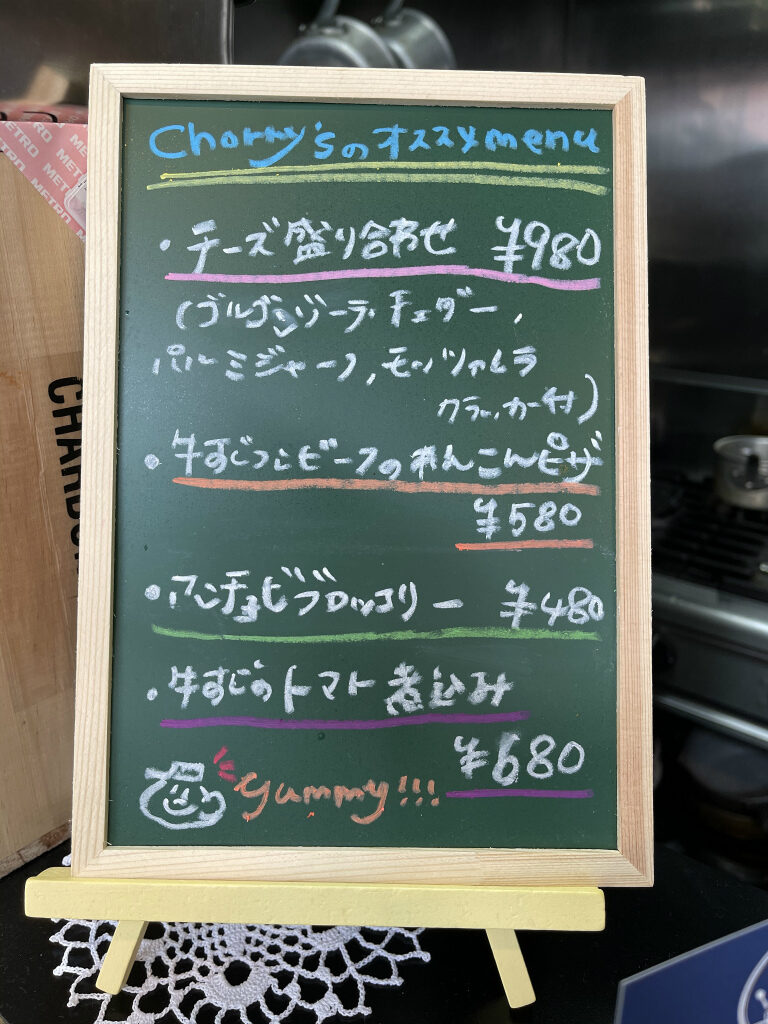 Chorry'sのオススメmenu
・チーズ盛り合わせ ¥980
(ゴルゴンゾーラ、チェダー、
パルミジャーノ、モッツァレラ
クラッカー付)
・牛すじつこビーフのれんこんピザ
¥580
・アンチョビブロッコリー ¥480
・牛すじのトマト煮込み
¥680
yummy!!!
METRO METRO METRO
CHARDON